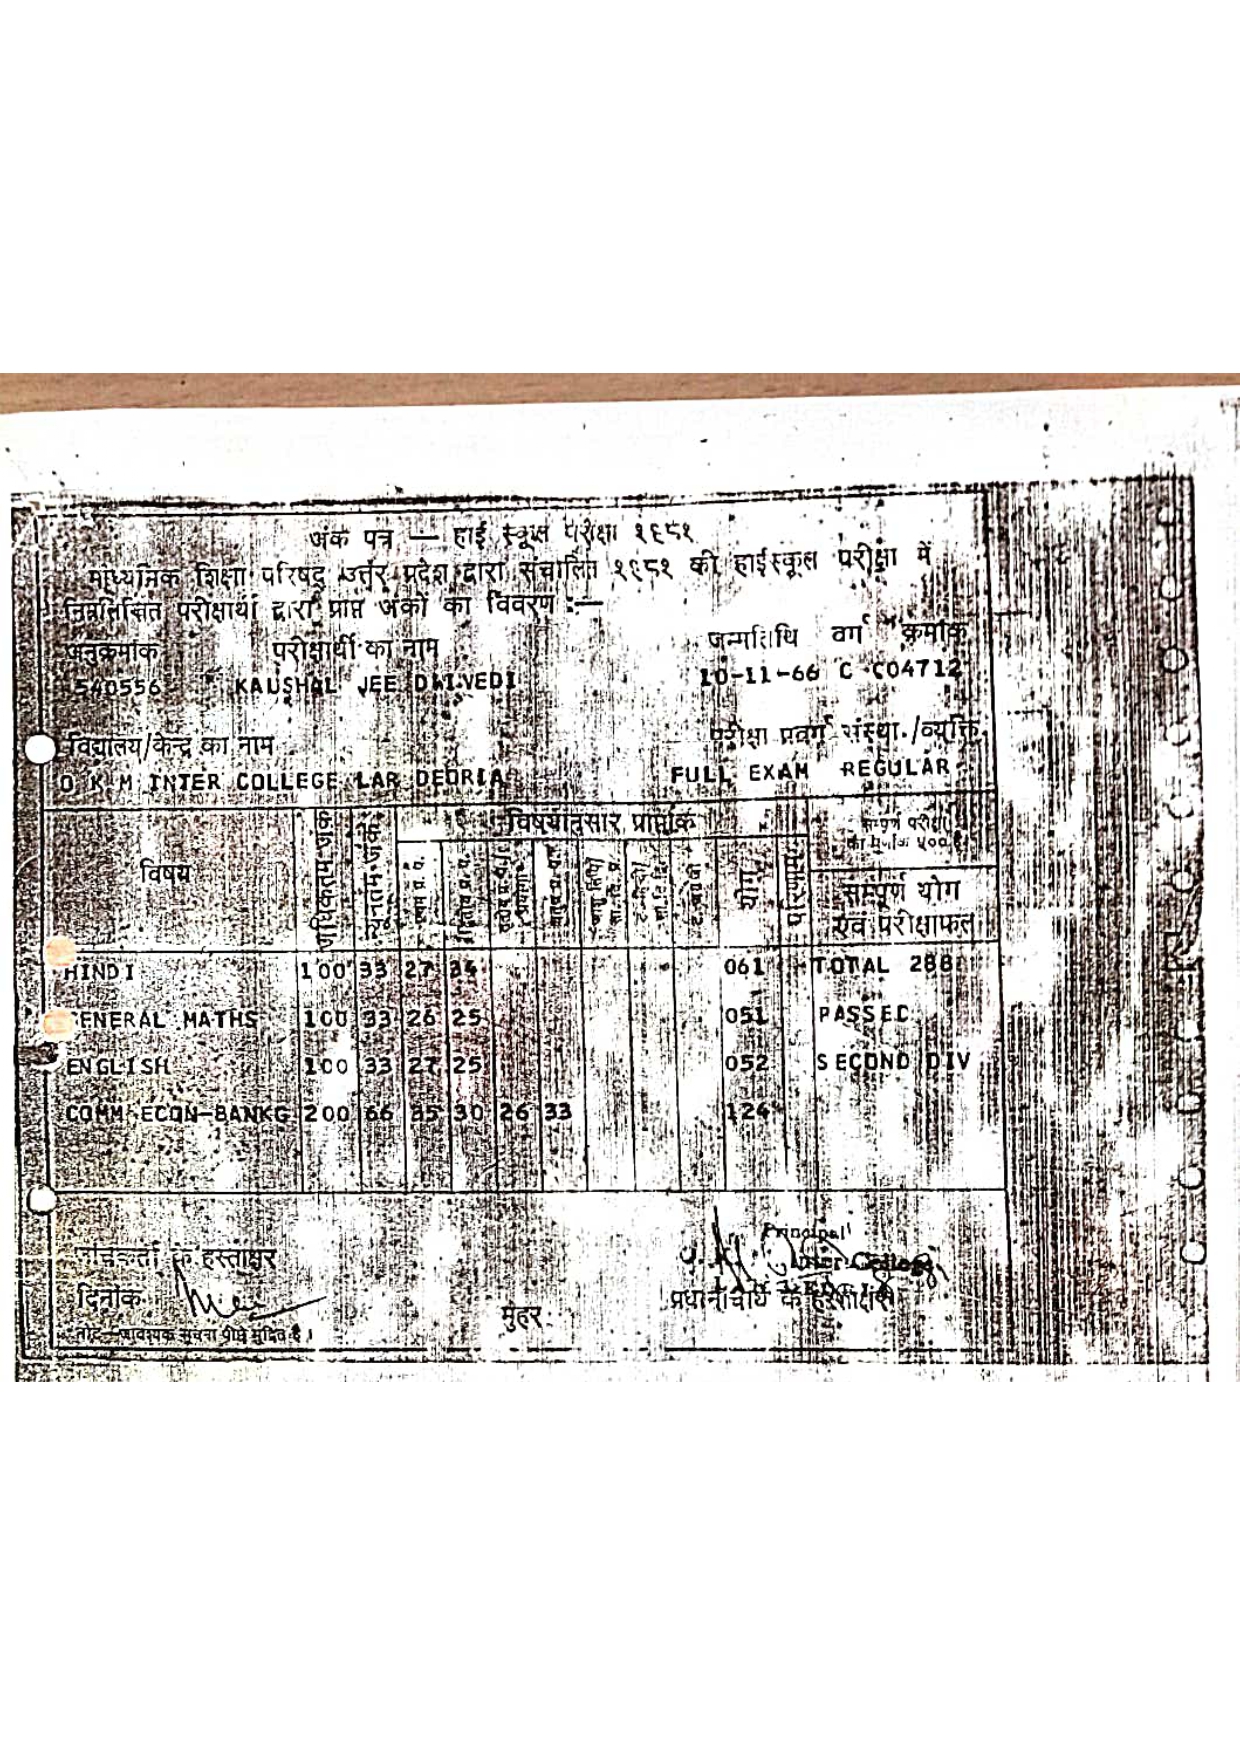 अंक पत्र — हाई स्कूल परीक्षा १९८१
माध्यमिक शिक्षा परिषद् उत्तर प्रदेश द्वारा संचालित १९८१ की हाईस्कूल परीक्षा में
निम्नलिखित परीक्षार्थी द्वारा प्राप्त अंकों का विवरण :—
अनुक्रमांक परीक्षार्थी का नाम जन्मतिथि वर्ग क्रमांक
540556 KAUSHAL JEE DWIVEDI 10-11-66 C C04712
विद्यालय/केन्द्र का नाम परीक्षा प्रवर्ग संस्था./व्यक्ति.
D K M INTER COLLEGE LAR DEORIA FULL EXAM REGULAR
विषयानुसार प्राप्तांक सम्पूर्ण परीक्षा
का पूर्णांक ५०० है
विषय अधिकतम अंक न्यूनतम अंक योग परिणाम सम्पूर्ण योग
एवं परीक्षाफल
HINDI 100 33 27 34 061 TOTAL 288
GENERAL MATHS 100 33 26 25 051 PASSED
ENGLISH 100 33 27 25 052 SECOND DIV
COMM ECON-BANKG 200 66 35 30 26 33 124
Principal
Inter College
के हस्ताक्षर
दिनांक मुहर प्रधानाचार्य के हस्ताक्षर
नोट—आवश्यक सूचना पीछे मुद्रित है ।